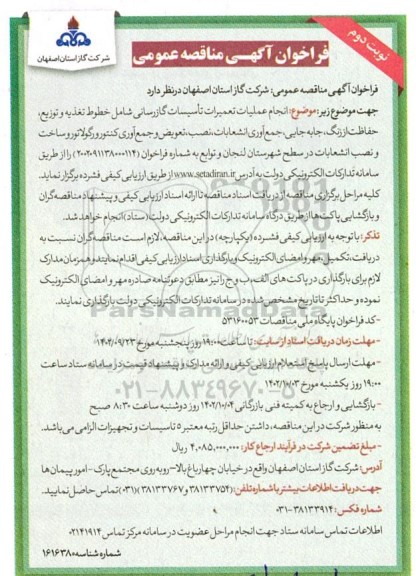 نوبت دوم
شرکت گاز استان اصفهان
فراخوان آگهی مناقصه عمومی
فراخوان آگهی مناقصه عمومی: شرکت گاز استان اصفهان درنظر دارد
جهت موضوع زیر: موضوع: انجام عملیات تعمیرات تأسیسات گازرسانی شامل خطوط تغذیه و توزیع،
حفاظت از زنگ، جابه جایی، جمع آوری انشعابات، نصب، تعویض و جمع آوری کنتور و رگولاتور و ساخت
و نصب انشعابات در سطح شهرستان لنجان و توابع به شماره فراخوان (۲۰۰۲۰۹۱۱۳۸۰۰۰۱۱۴) را از طریق
سامانه تدارکات الکترونیکی دولت به آدرس www.setadiran.ir از طریق ارزیابی کیفی فشرده برگزار نماید.
کلیه مراحل برگزاری مناقصه از دریافت اسناد مناقصه تا ارائه اسناد ارزیابی کیفی و پیشنهاد مناقصه گران
و بازگشایی پاکت ها از طریق درگاه سامانه تدارکات الکترونیکی دولت (ستاد) انجام خواهد شد.
تذکر: با توجه به ارزیابی کیفی فشرده (یکپارچه) در این مناقصه، لازم است مناقصه گران نسبت به
دریافت، تکمیل، مهر و امضای الکترونیک و بارگذاری اسناد ارزیابی کیفی اقدام نمایند و همزمان مدارک
لازم برای بارگذاری در پاکت های الف، ب و ج را نیز مطابق دعوتنامه صادره مهر و امضای الکترونیک
نموده و حداکثر تا تاریخ مشخص شده در سامانه تدارکات الکترونیکی دولت بارگذاری نمایند.
-کد فراخوان پایگاه ملی مناقصات ۵۳۱۶۰۰۵۳
- مهلت زمان دریافت اسناد از سایت: تا ساعت ۱۹:۰۰ روز پنجشنبه مورخ ۱۴۰۲/۰۹/۲۳
- مهلت ارسال پاسخ استعلام ارزیابی کیفی و ارائه مدارک و پیشنهاد قیمت در سامانه ستاد ساعت
۱۹:۰۰ روز یکشنبه مورخ ۱۴۰۲/۱۰/۰۳
- بازگشایی و ارجاع به کمیته فنی بازرگانی ۱۴۰۲/۱۰/۰۴ روز دوشنبه ساعت ۸:۳۰ صبح
به منظور شرکت در این مناقصه، داشتن حداقل رتبه معتبر ۵ تاسیسات و تجهیزات الزامی می باشد.
- مبلغ تضمین شرکت در فرآیند ارجاع کار: ۴,۰۸۵,۰۰۰,۰۰۰ ریال
آدرس: شرکت گاز استان اصفهان واقع در خیابان چهارباغ بالا-روبه روی مجتمع پارک-امور پیمان ها
جهت دریافت اطلاعات بیشتر با شماره تلفن: (۳۸۱۳۳۷۵۴ و ۳۸۱۳۳۷۶۷) (۰۳۱) تماس حاصل نمایید.
شماره فکس: ۳۸۱۳۳۹۱۴-۰۳۱
اطلاعات تماس سامانه ستاد جهت انجام مراحل عضویت در سامانه مرکز تماس ۰۲۱۴۱۹۱۴
شماره شناسه: ۱۶۱۶۳۸۰
ParsNamadData
۰۲۱-۸۸۳۴۹۶۷۰-۵